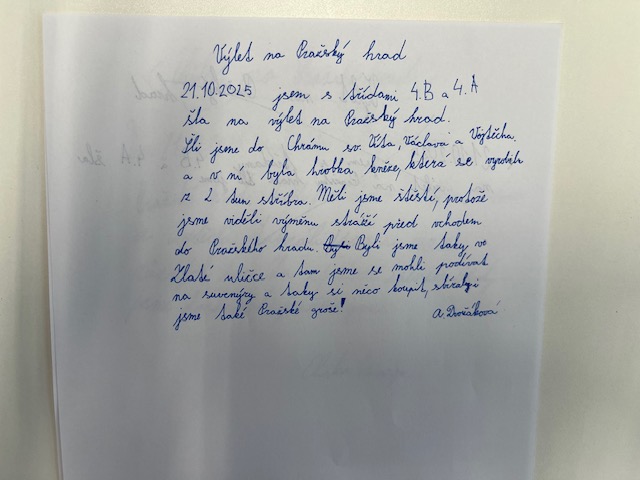 Výlet na Pražský hrad
21.10.2025 jsem s třídami 4.B a 4.A
šla na výlet na Pražský hrad.
Šli jsme do Chrámu sv. Víta, Václava a Vojtěcha.
a v ní byla hrobka kněze, která se vyrobila
z 2 tun stříbra. Měli jsme štěstí, protože
jsme viděli výměnu stráží před vchodem
do Pražského hradu. Byli jsme taky ve
Zlaté uličce a tam jsme se mohli podívat
na suvenýry a taky si něco koupit, sbíraly
jsme také Pražské groše!
A. Dvořáková